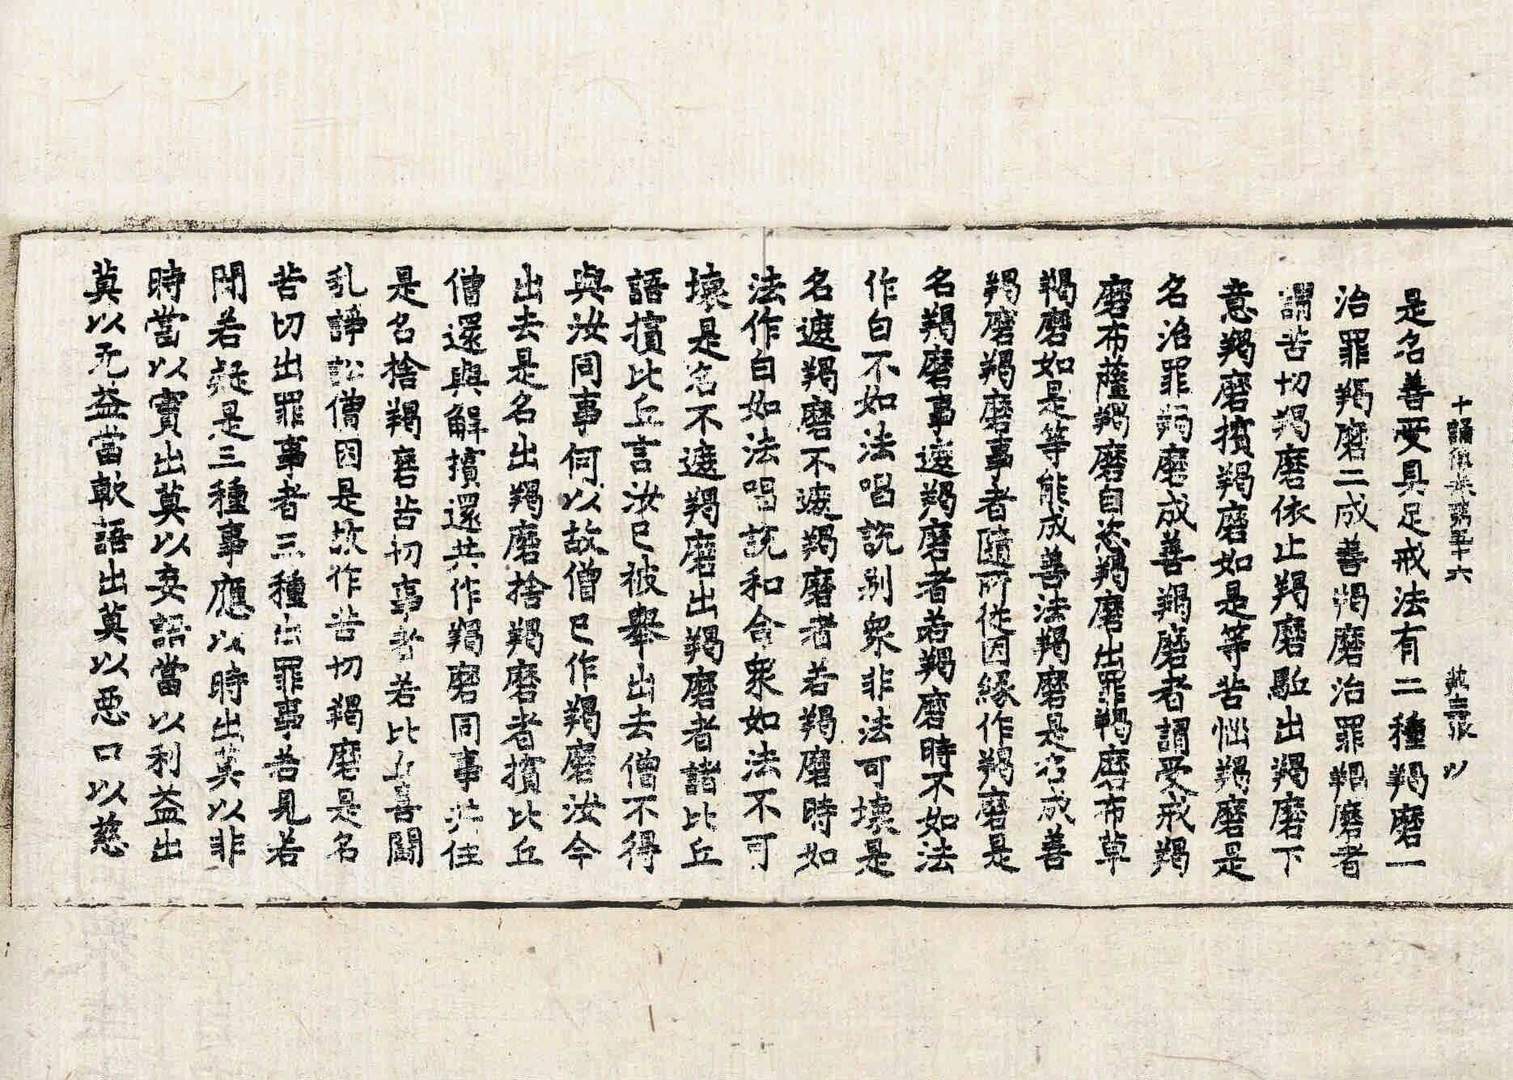 十誦律卷第五十六 第三張 以
是名善受具足戒法有二種羯磨一
治罪羯磨二成善羯磨治罪羯磨者
謂苦切羯磨依止羯磨駈出羯磨下
意羯磨擯羯磨如是等苦惱羯磨是
名治罪羯磨成善羯磨者謂受戒羯
磨布薩羯磨自恣羯磨出罪羯磨布草
羯磨如是等能成善法羯磨是名成善
羯磨羯磨事者隨所從因緣作羯磨是
名羯磨事遮羯磨者若羯磨時不如法
作白不如法唱說別衆非法可壞是
名遮羯磨不遮羯磨者若羯磨時如
法作白如法唱說和合衆如法不可
壞是名不遮羯磨出羯磨者諸比丘
語擯比丘言汝已被舉出去僧不得
與汝同事何以故僧已作羯磨汝今
出去是名出羯磨捨羯磨者擯比丘
僧還與解擯還共作羯磨同事共住
是名捨羯磨苦切事者若比丘喜鬪
乱諍訟僧因是故作苦切羯磨是名
苦切出罪事者三種出罪事若見若
聞若疑是三種事應以時出莫以非
時當以實出莫以妄語當以利益出
莫以无益當軟語出莫以惡口以慈